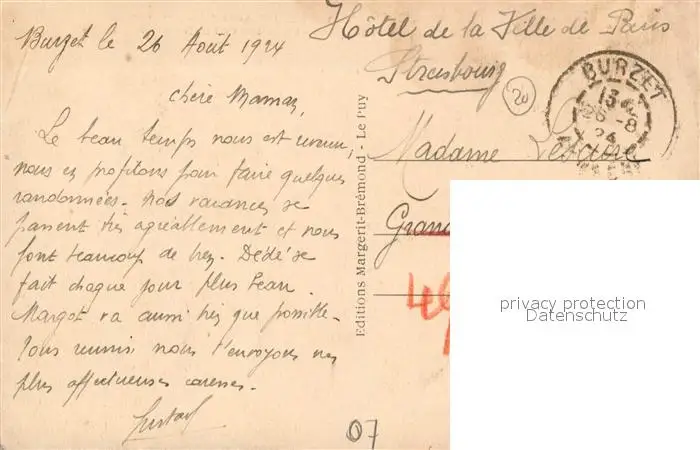 Burzet le 26 Août 1924
chère Maman,
Le beau temps nous est revenu,
nous en profitons pour faire quelques
randonnées - nos vacances se
passent très agréablement et nous
font beaucoup de bien. Dédé se
fait chaque jour plus beau.
Margot va aussi bien que possible -
Tous réunis nous t'envoyons nos
plus affectueuses caresses.
07
Editions Margerit-Brémond - Le Puy
Hôtel de la Ville de Paris
Strasbourg
20
BURZET
26 - 8
24
Madame
Grand
privacy protection
Datenschutz